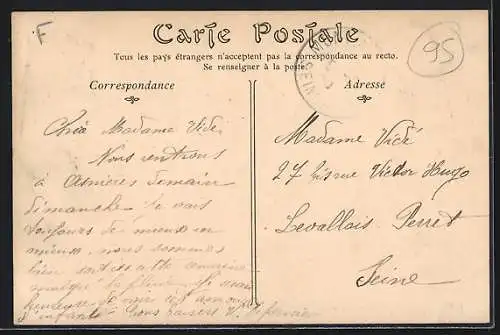 F
Carte Postale
95
Tous les pays étrangers n'acceptent pas la correspondance au recto.
Se renseigner à la poste.
Correspondance
Adresse
Madame Vidé
Nous rentrons
à Asnières demain
dimanche. Je vais
toujours de mieux en
mieux, nous sommes
bien cette semaine
malgré la pluie.
bons baisers
Madame Vidé
27 bis rue Victor Hugo
Levallois Perret
Seine